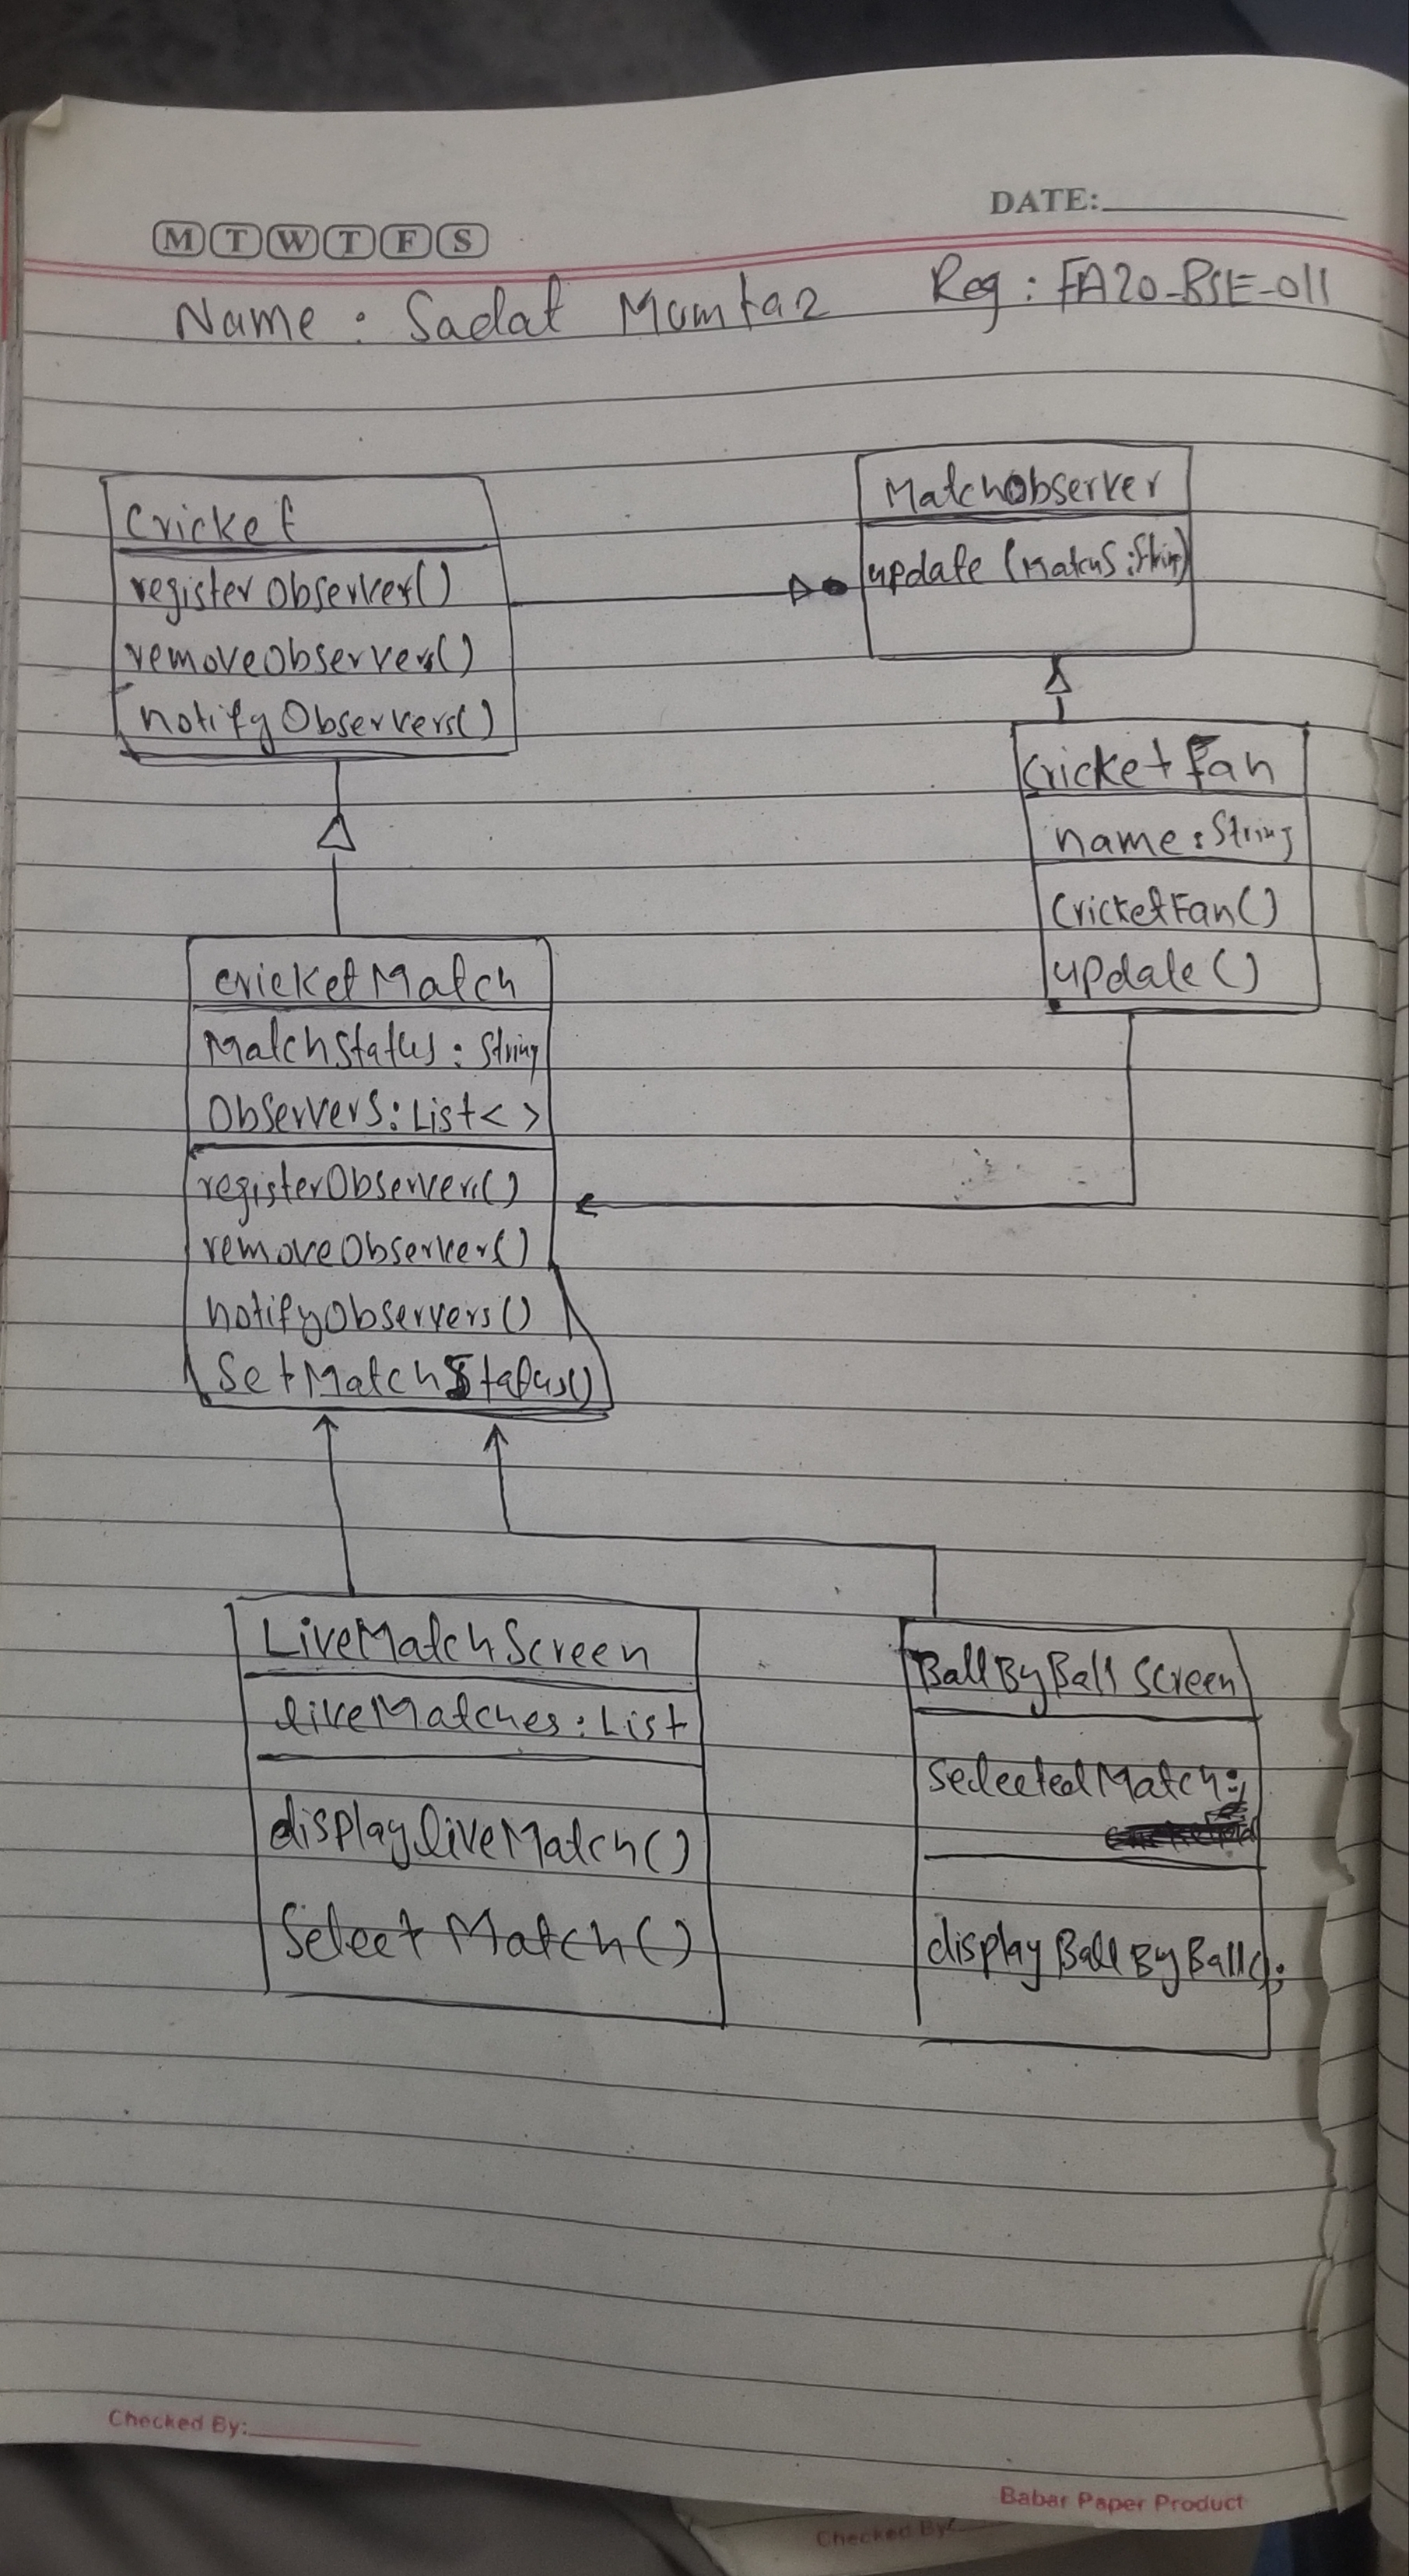 DATE:
M T W T F S
Name : Sadat Mumtaz Reg : FA20-BSE-011
Cricket
registerObserver()
removeObserver()
notifyObservers()
MatchObserver
update (MatchS:String)
CricketFan
name:String
CricketFan()
update()
CricketMatch
MatchStatus : String
Observers:List< >
registerObserver()
removeObserver()
notifyObservers()
SetMatchStatus()
LiveMatchScreen
liveMatches:List
displayliveMatch()
SelectMatch()
BallByBall Screen
SelectedMatch:
displayBallByBall();
Checked By:
Babar Paper Product
Checked By: